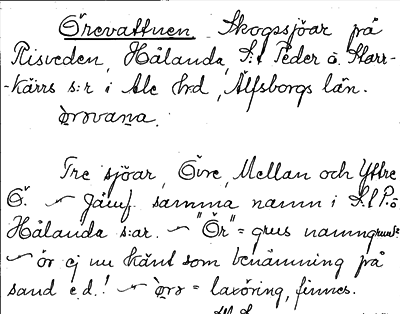 Örevattnen Skogssjöar på
Risveden, Hålanda, S:t Peder o. Starr-
-kärrs s:r i Ale hrd, Älfsborgs län.
òrəvana.
Tre sjöar, Övre, Mellan och Yttre
Ö. ~ Jämf. samma namn i S.t P. o
Hålanda s:ar. ~ "Ör" = grus namngrund?
~ ör ej nu känt som benämning på
sand e.d.! ~ òrə = laxöring, finnes.